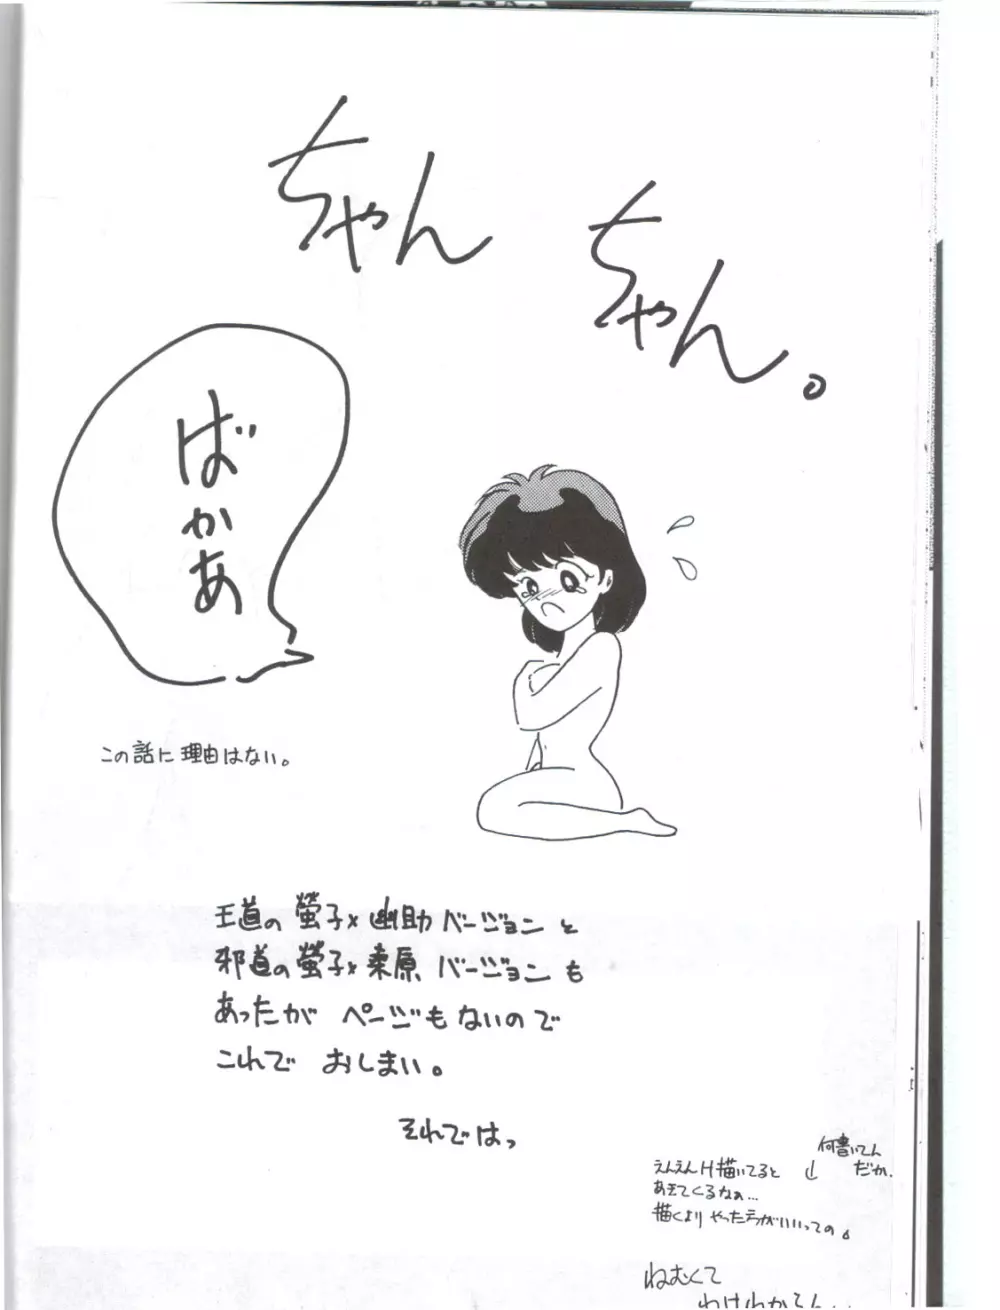 ちゃん
ちゃん。
ばかあ
この話に理由はない。
王道の螢子×幽助バージョンと
邪道の螢子×桑原バージョンも
あったが ページもないので
これで おしまい。
それではっ
何書いてん
だか。
えんえんH描いてると
あきてくるなぁ…
描くより やった方がいいっての。
ねむくて
わけわかてん